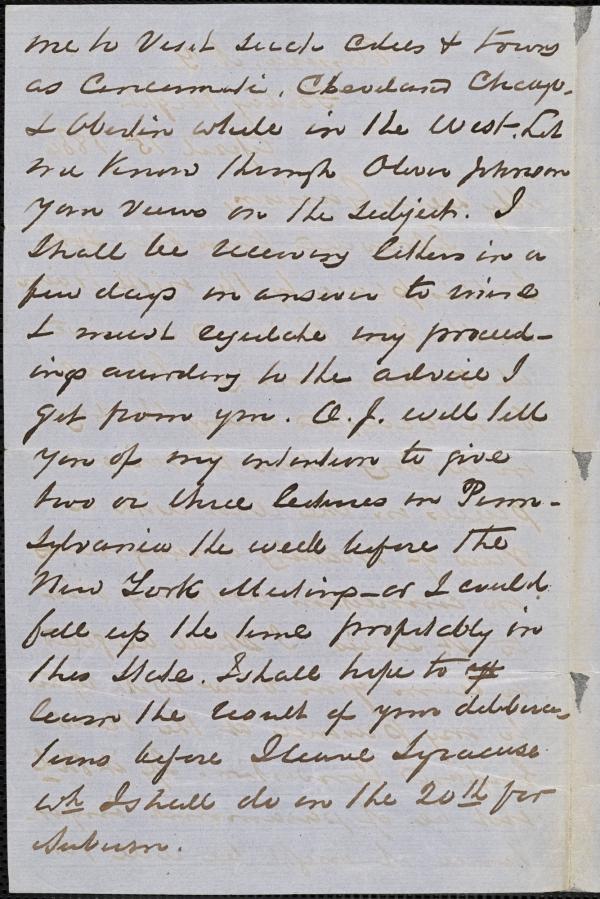 me to visit such cities & towns
as Cincinnati, Cleveland Chicago
& Oberlin while in the West. Let
me know through Oliver Johnson
your views on the subject. I
shall be receiving letters in a
few days in answer to mine
& must regulate my proceed-
ings according to the advice I
get from you. O. J. will tell
you of my intention to give
two or three lectures in Penn-
sylvania the week before the
New York Meeting - or I could
fill up the time profitably in
this State. I shall hope to
learn the result of your delibera-
tions before I leave Syracuse
wh I shall do on the 20th for
Auburn.